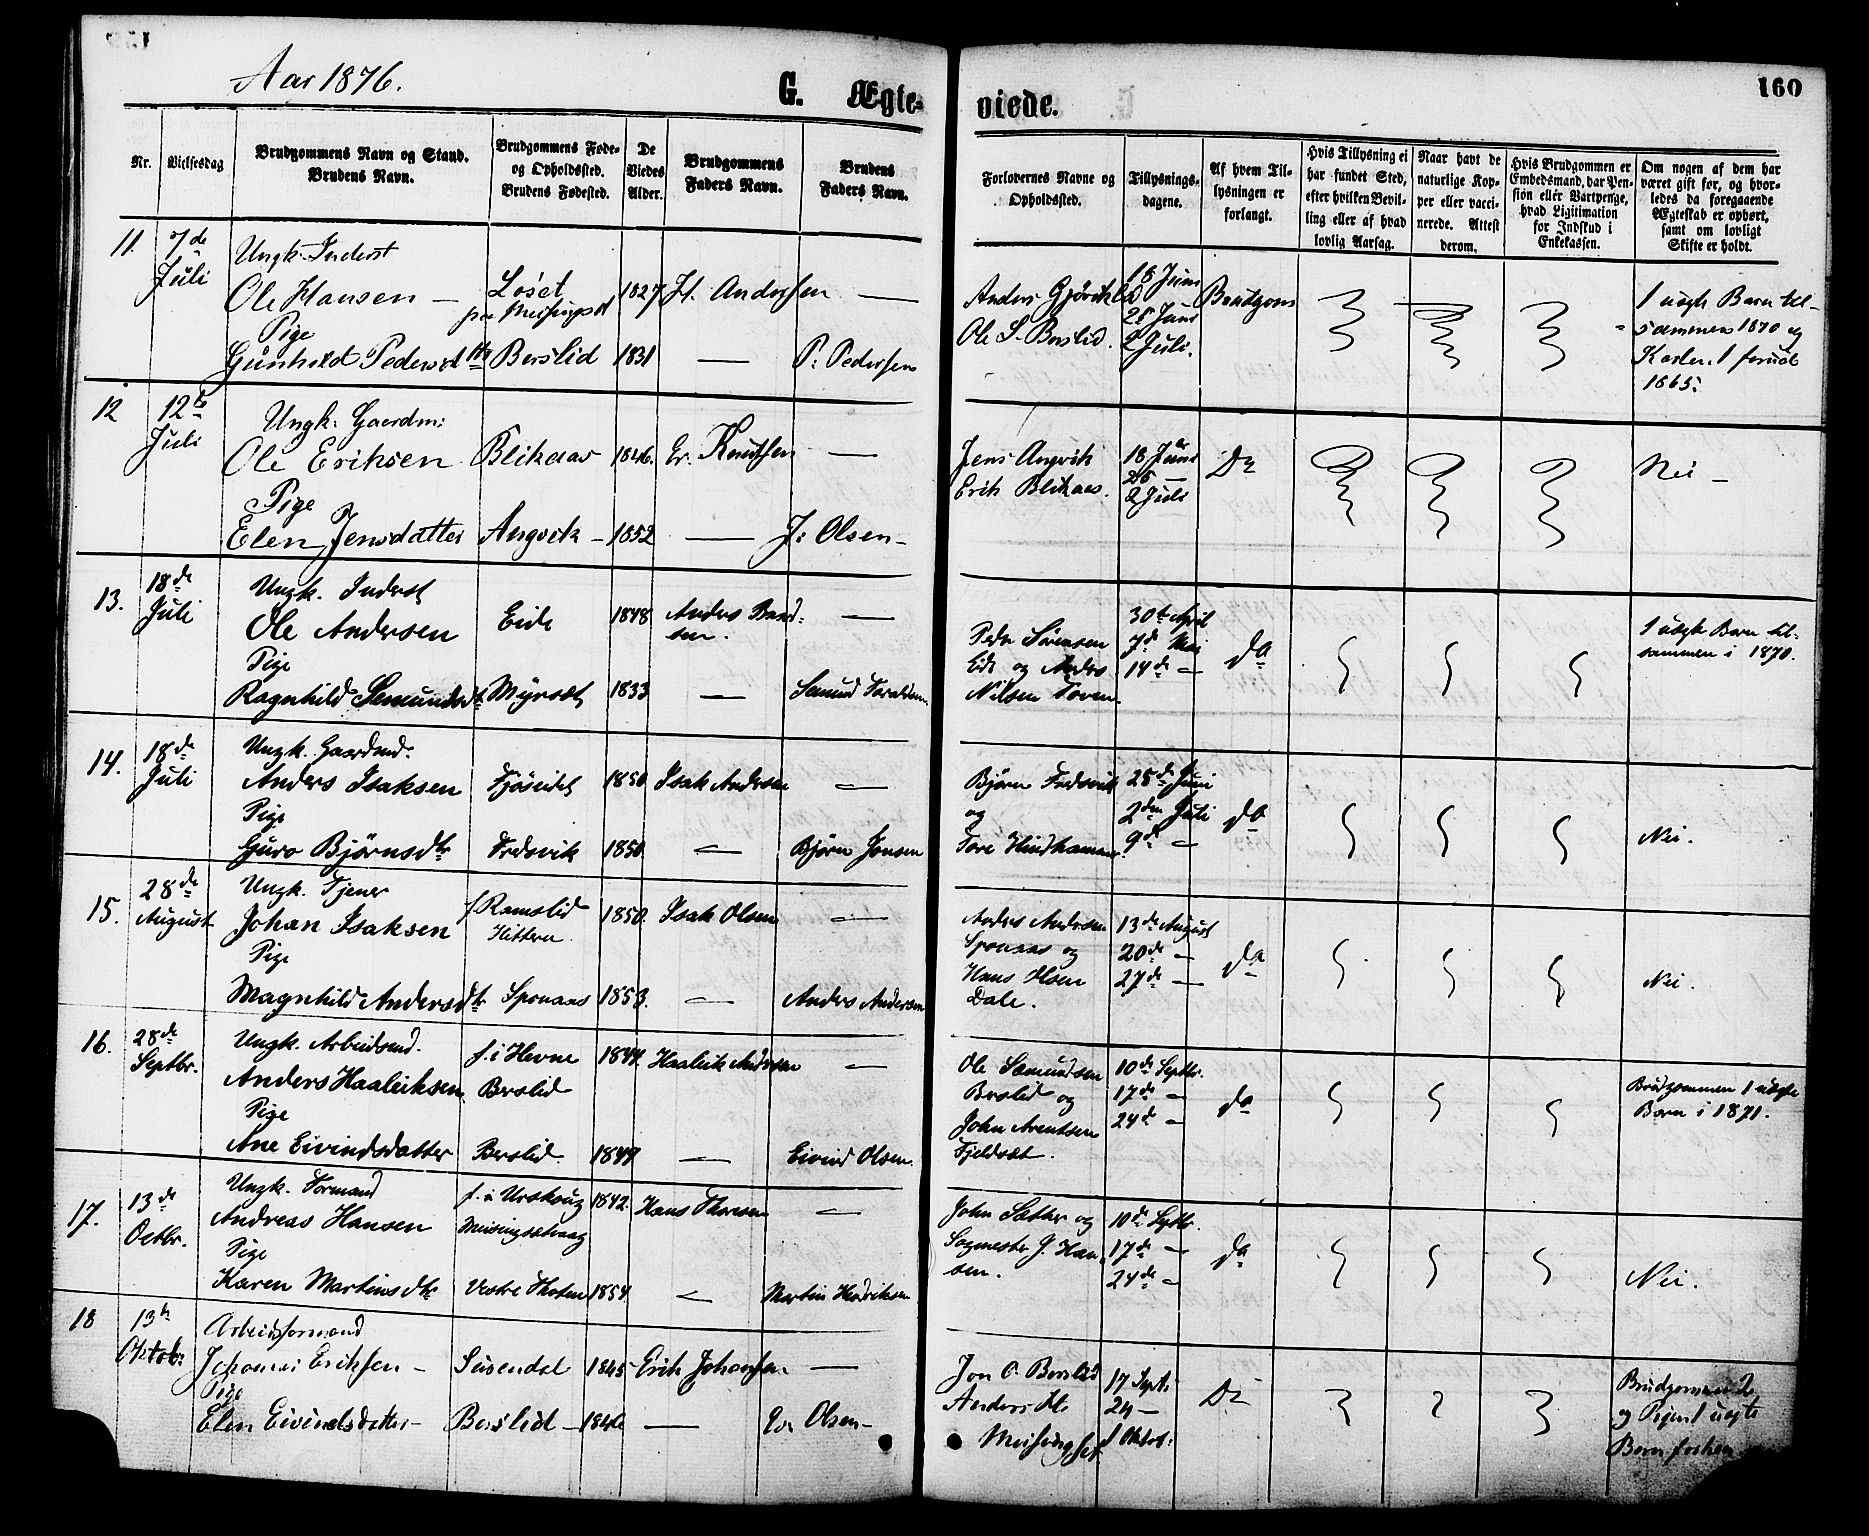 Aar 1876.
G. Ægte-
viede.
160
Nr.
Vielsesdag
Brudgommens Navn og Stand.
Brudens Navn.
Brudgommens Føde-
og Opholdssted.
Brudens Fødested.
De
Viedes
Alder.
Brudgommens
Faders Navn.
Brudens
Faders Navn.
Forlovernes Navne og
Opholdssted.
Tillysnings-
dagene.
Af hvem Til-
lysningen er
forlangt.
Hvis Tillysning ei
har fundet Sted,
efter hvilken Bevil-
ling eller af hvad
lovlig Aarsag.
Naar havt de
naturlige Kop-
per eller vacci-
nerede. Attest
derom.
Hvis Brudgommen er
Embedsmand, har Pen-
sion eller Vartpenge,
hvad Ligitimation
for Indskud i
Enkekassen.
Om nogen af dem har
været gift før, og hvor-
ledes da foregaaende
Ægteskab er ophørt,
samt om lovligt
Skifte er holdt.
11. 7de
Juli
Ungk. Inderst
Ole Hansen — Løset 1827 H. Andersen —
Pige
Gunhild Pedersdtr Berslid 1831 — P. Pedersen
Anders Gjøvikli
Ole S. Berslid.
18 Juni
25 Juni
2 Juli.
Brudgom
1 uægte Barn til-
sammen 1870 og
1865.
12 12te
Juli
Ungk. Gaardm:
Ole Eriksen Blikaas 1846. Er. Knutsen —
Pige
Elen Jensdatter Angvik — 1852 — J: Olsen —
Jens Angvik
Erik Blikaas.
18 Juni
25 —
2 Juli
Do
Nei —
13. 18de
Juli
Ungk. Inderst
Ole Andersen Eide 1848 Anders Baard-
sen. —
Pige
Ragnhild Semundsdt. Myrset 1833 —
Peder Sørensen
Eide og Anders
Nilsen Toven.
30te April
7de Mai
14de —
do
1 uægte Barn til-
sammen i 1870.
14. 18de
Juli
Ungk. Gaardmd.
Anders Isaksen Fjøseidet 1850 Isak Andersen —
Pige
Guro Bjørnsdtr Fredsvik 1850 — Bjørn Jonsen
Bjørn Fredsvik
og
Tore Hindhammer
25de Juni
2den Juli
9de —
do
Nei.
15. 28de
August
Ungk. Tjener
Johan Isaksen f. Ramslid 1850. Isak Olsen —
Hitteren
Pige
Magnhild Andersdtr. Sponaas 1853. — Anders Andersen
Anders Andersen
Sponaas og
Hans Olsen
Dale.
13de August
20de —
27de —
do
Nei.
16. 28de
Septbr.
Ungk. Arbeidsmd.
Anders Haaleiksen f. i Hevne 1847. Haaleik Andersen —
Berslid
Pige
Ane Eivindsdatter Berslid. 1847 — Eivind Olsen.
Ole Semundsen
Berslid og
John Arentsen
Fjeldset.
10de Septbr.
17de —
24de —
do
Brudgommen 1 uægte
Barn i 1871.
17. 13de
Octbr.
Ungk. Formand
Andreas Hansen f. i Urskoug 1842. Hans Thoresen —
Meisingsetvaag
Pige
Karen Martinsdtr Vestre Thoten 1854 — Martin Henriksen
John Sæther og
Sagmester J. Han-
sen.
10de Septbr.
17de —
24de —
do
Nei.
18 13de
Oktob:
Arbeidsformand
Johannes Eriksen — 1845 Erik Johansen —
Pige
Elen Eivindsdatter — Berslid — 1846 — Ev. Olsen —
Jon O. Berslid
Anders
Meisingset
17 Sept:
24 —
1 Oktob:
Do
Brudgommen 2
og Pigen 1 uægte
Børn